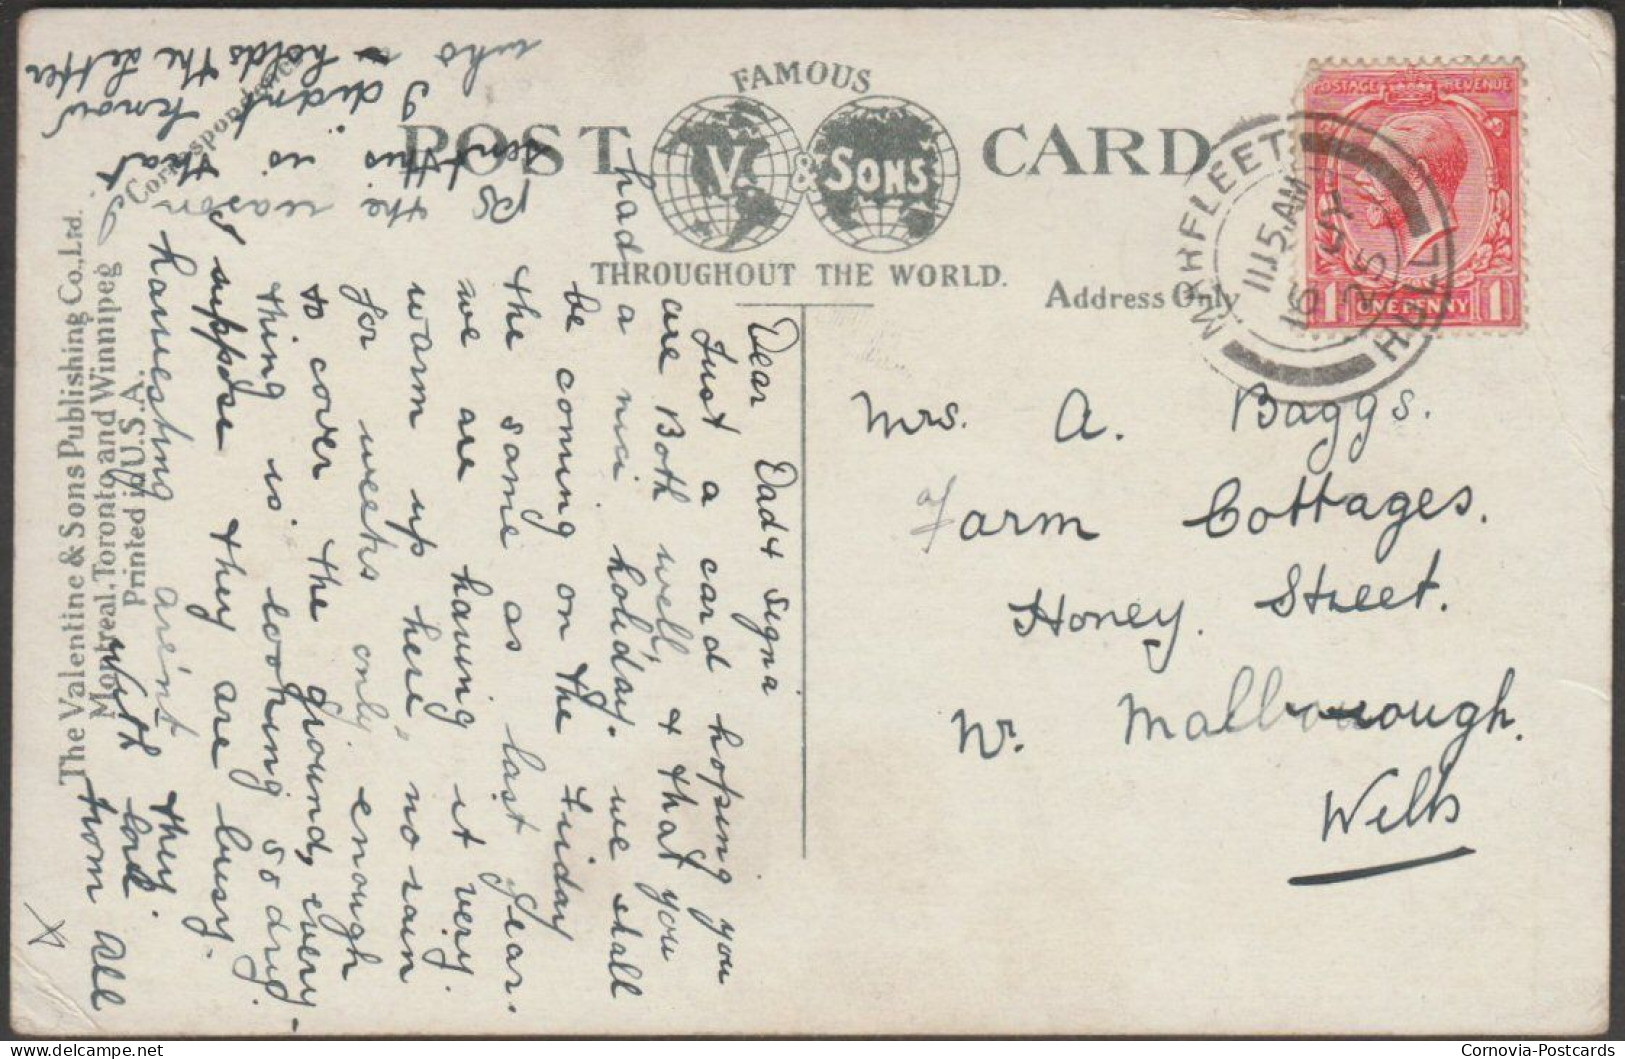 FAMOUS
POST CARD
V. & SONS
THROUGHOUT THE WORLD.
Correspondence
Address Only
The Valentine & Sons Publishing Co., Ltd.
Montreal, Toronto and Winnipeg
Printed in U.S.A.
POSTAGE REVENUE
1 ONE PENNY 1
MARFLEET
1115 AM
16 JY
25
HULL
Mrs. A. Baggs.
Farm Cottages.
Honey. Street.
Nr. Malborough.
Wilts
Dear Dad &
Just a card hoping you
are Both well, & that you
had a nice holiday. we shall
be coming on the Friday
the same as last year.
we are having it very
warm up here, no rain
for weeks only enough
to cover the ground, every-
thing is looking so dry.
I suppose they are busy.
harvesting are'nt they.
With love
from all
X
PS the reason I
sent this is that
I didnt know
who holds the letter
Cornovia-Postcards